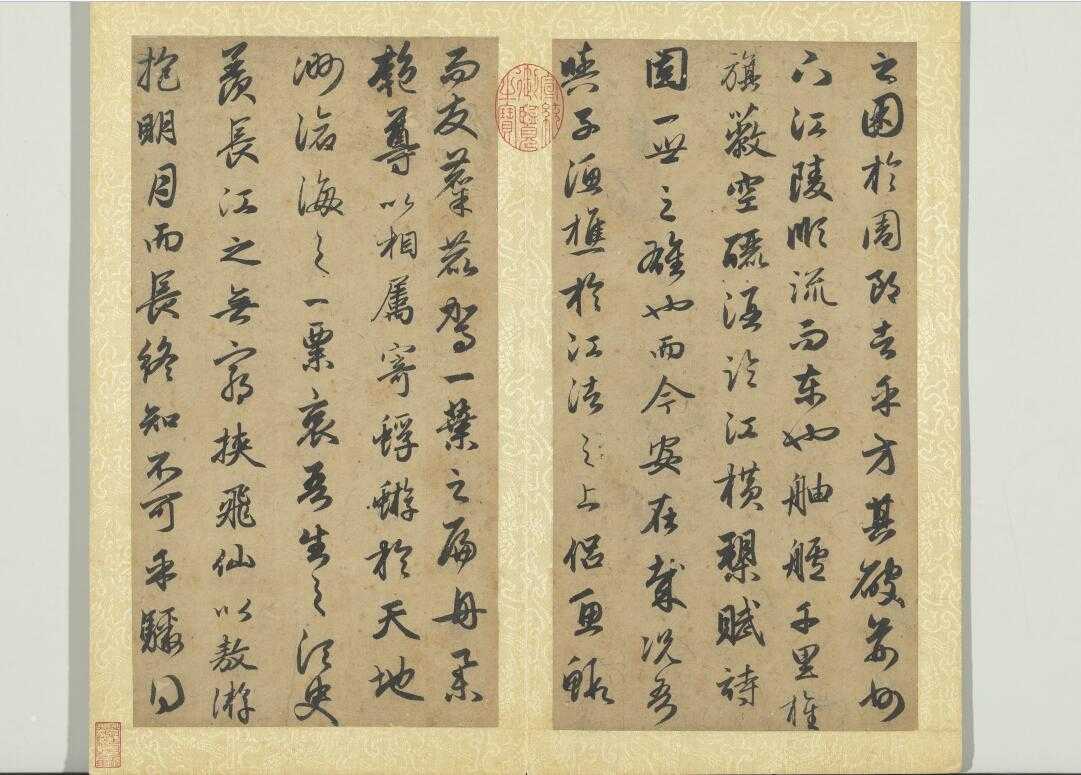 之困於周郎者乎方其破荊州
下江陵順流而東也舳艫千里旌
旗蔽空釃酒臨江橫槊賦詩
固一世之雄也而今安在哉況吾
與子漁樵於江渚之上侶魚蝦
而友麋鹿駕一葉之扁舟舉
匏尊以相屬寄蜉蝣於天地
渺滄海之一粟哀吾生之須臾
羨長江之無窮挾飛仙以敖游
抱明月而長終知不可乎驟得
宣統御覽之寶